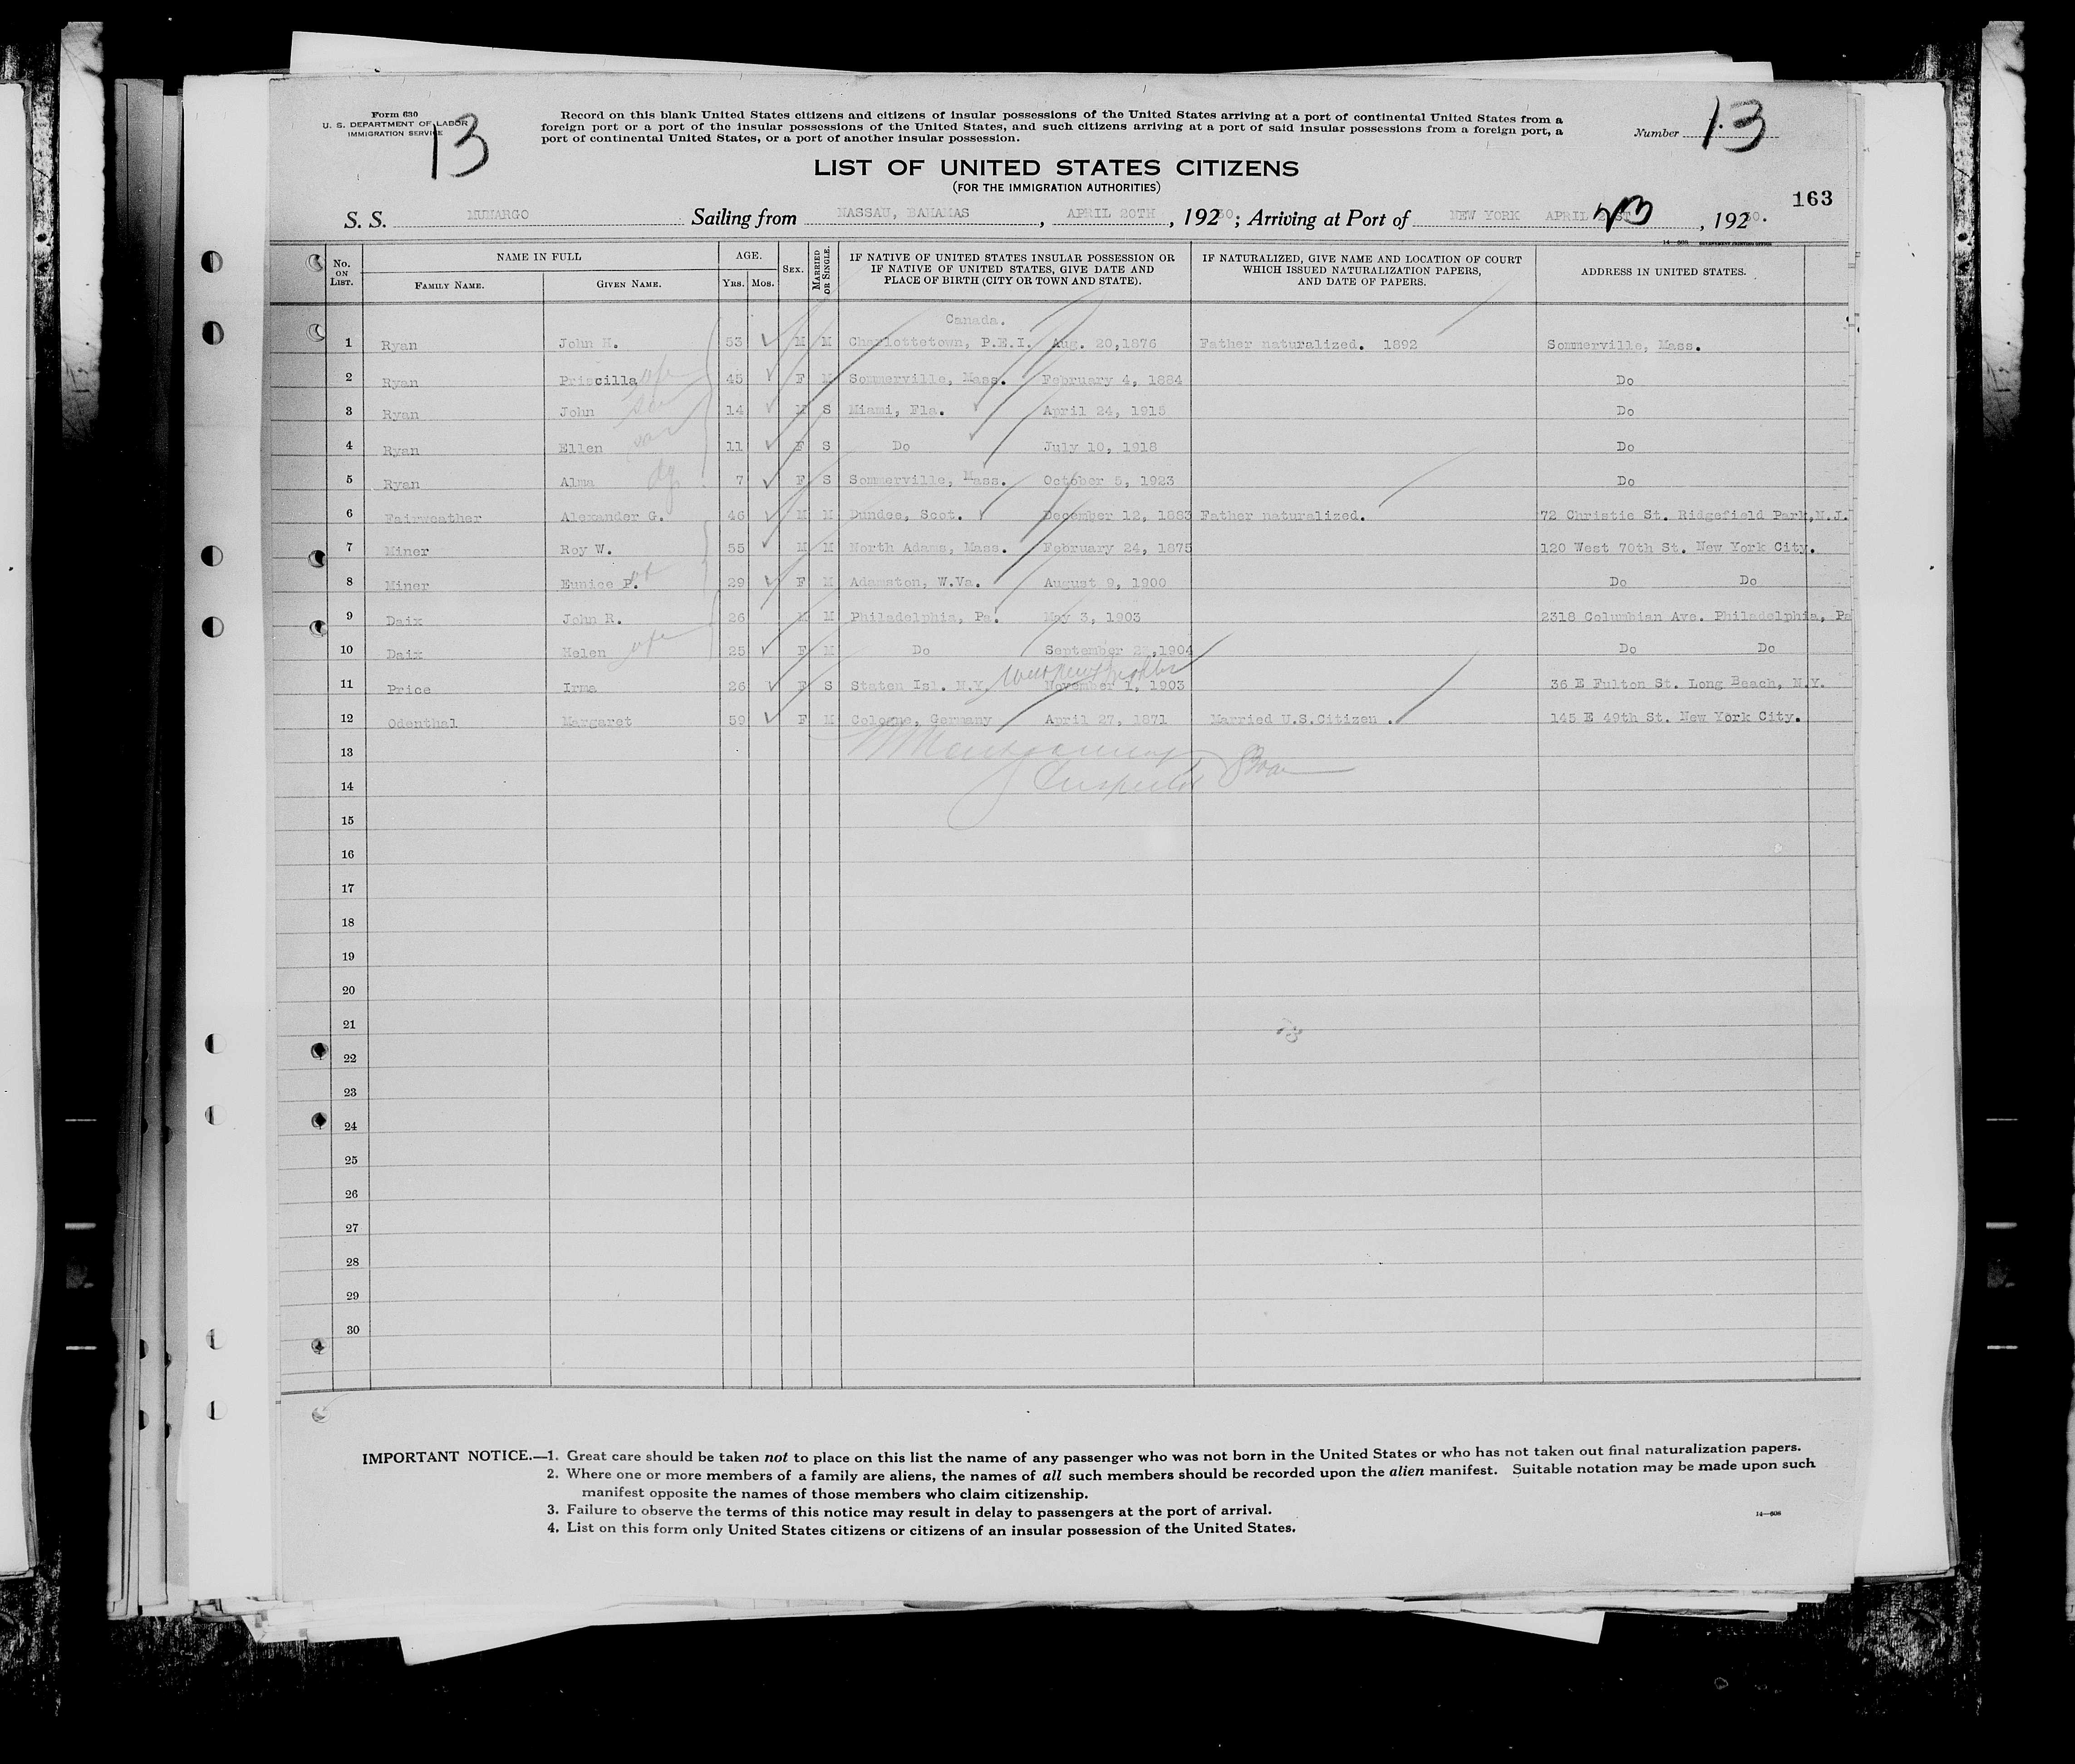 Form 630
U. S. DEPARTMENT OF LABOR
IMMIGRATION SERVICE
13
Record on this blank United States citizens and citizens of insular possessions of the United States arriving at a port of continental United States from a
foreign port or a port of the insular possessions of the United States, and such citizens arriving at a port of said insular possessions from a foreign port, a
port of continental United States, or a port of another insular possession.
Number 13
LIST OF UNITED STATES CITIZENS
(FOR THE IMMIGRATION AUTHORITIES)
163
S. S. MUNARGO Sailing from NASSAU, BAHAMAS, APRIL 20TH, 19230; Arriving at Port of NEW YORK APRIL 23, 19230.
No. ON LIST. NAME IN FULL AGE. SEX. MARRIED OR SINGLE. IF NATIVE OF UNITED STATES INSULAR POSSESSION OR IF NATIVE OF UNITED STATES, GIVE DATE AND PLACE OF BIRTH (CITY OR TOWN AND STATE). IF NATURALIZED, GIVE NAME AND LOCATION OF COURT WHICH ISSUED NATURALIZATION PAPERS, AND DATE OF PAPERS. ADDRESS IN UNITED STATES.
FAMILY NAME. GIVEN NAME. YRS. MOS.
Canada.
1 Ryan John H. 53 M M Charlottetown, P.E.I. Aug. 20,1876 Father naturalized. 1892 Sommerville, Mass.
2 Ryan Priscilla wfe 45 F M Sommerville, Mass. February 4, 1884 Do
3 Ryan John son 14 M S Miami, Fla. April 24, 1915 Do
4 Ryan Ellen 11 F S Do July 10, 1918 Do
5 Ryan Alma 7 F S Sommerville, Mass. October 5, 1923 Do
6 Fairweather Alexander G. 46 M M Dundee, Scot. December 12, 1883 Father naturalized. 72 Christie St. Ridgefield Park, N.J.
7 Miner Roy W. 55 M M North Adams, Mass. February 24, 1875 120 West 70th St. New York City.
8 Miner Eunice P. 29 F M Adamston, W.Va. August 9, 1900 Do Do
9 Daix John R. 26 M M Philadelphia, Pa. May 3, 1903 2318 Columbian Ave. Philadelphia, Pa
10 Daix Helen wfe 25 F M Do September ,1904 Do Do
West New Brighton
11 Price Irma 26 F S Staten Isl. N.Y. November 1, 1903 36 E Fulton St. Long Beach, N.Y.
12 Odenthal Margaret 59 F M Cologne, Germany April 27, 1871 Married U.S.Citizen. 145 E 49th St. New York City.
13
14 Inspector
15
16
17
18
19
20
21
22
23
24
25
26
27
28
29
30
IMPORTANT NOTICE.—1. Great care should be taken not to place on this list the name of any passenger who was not born in the United States or who has not taken out final naturalization papers.
2. Where one or more members of a family are aliens, the names of all such members should be recorded upon the alien manifest. Suitable notation may be made upon such
manifest opposite the names of those members who claim citizenship.
3. Failure to observe the terms of this notice may result in delay to passengers at the port of arrival.
4. List on this form only United States citizens or citizens of an insular possession of the United States.
14—608